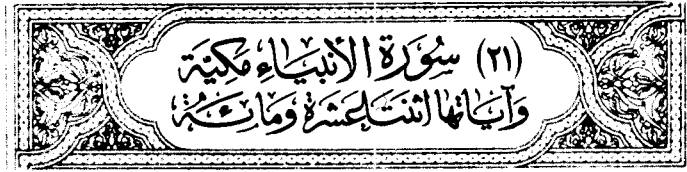 (٢١) سُورَةُ الأَنْبِيَاءِ مَكِيَّة
وَآيَاتُهَا اثْنَتَا عَشْرَةَ وَمِائَة